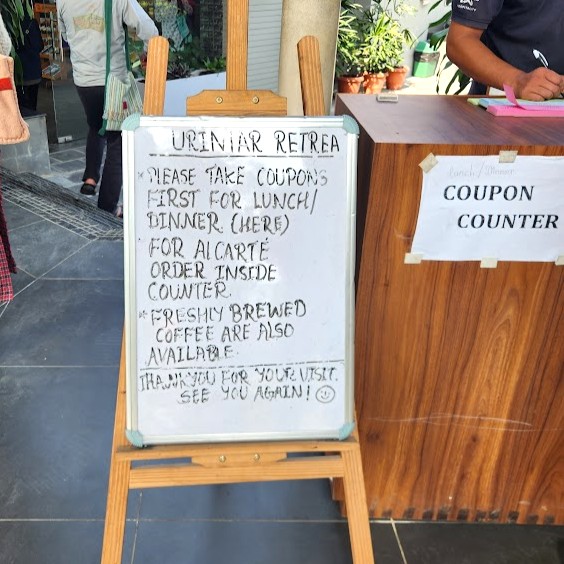 URINIAR RETREA
* PLEASE TAKE COUPONS
FIRST FOR LUNCH/
DINNER (HERE)
FOR ALCARTÉ
ORDER INSIDE
COUNTER.
* FRESHLY BREWED
COFFEE ARE ALSO
AVAILABLE.
THANKYOU FOR YOUR VISIT.
SEE YOU AGAIN!
Lunch/Dinner
COUPON
COUNTER